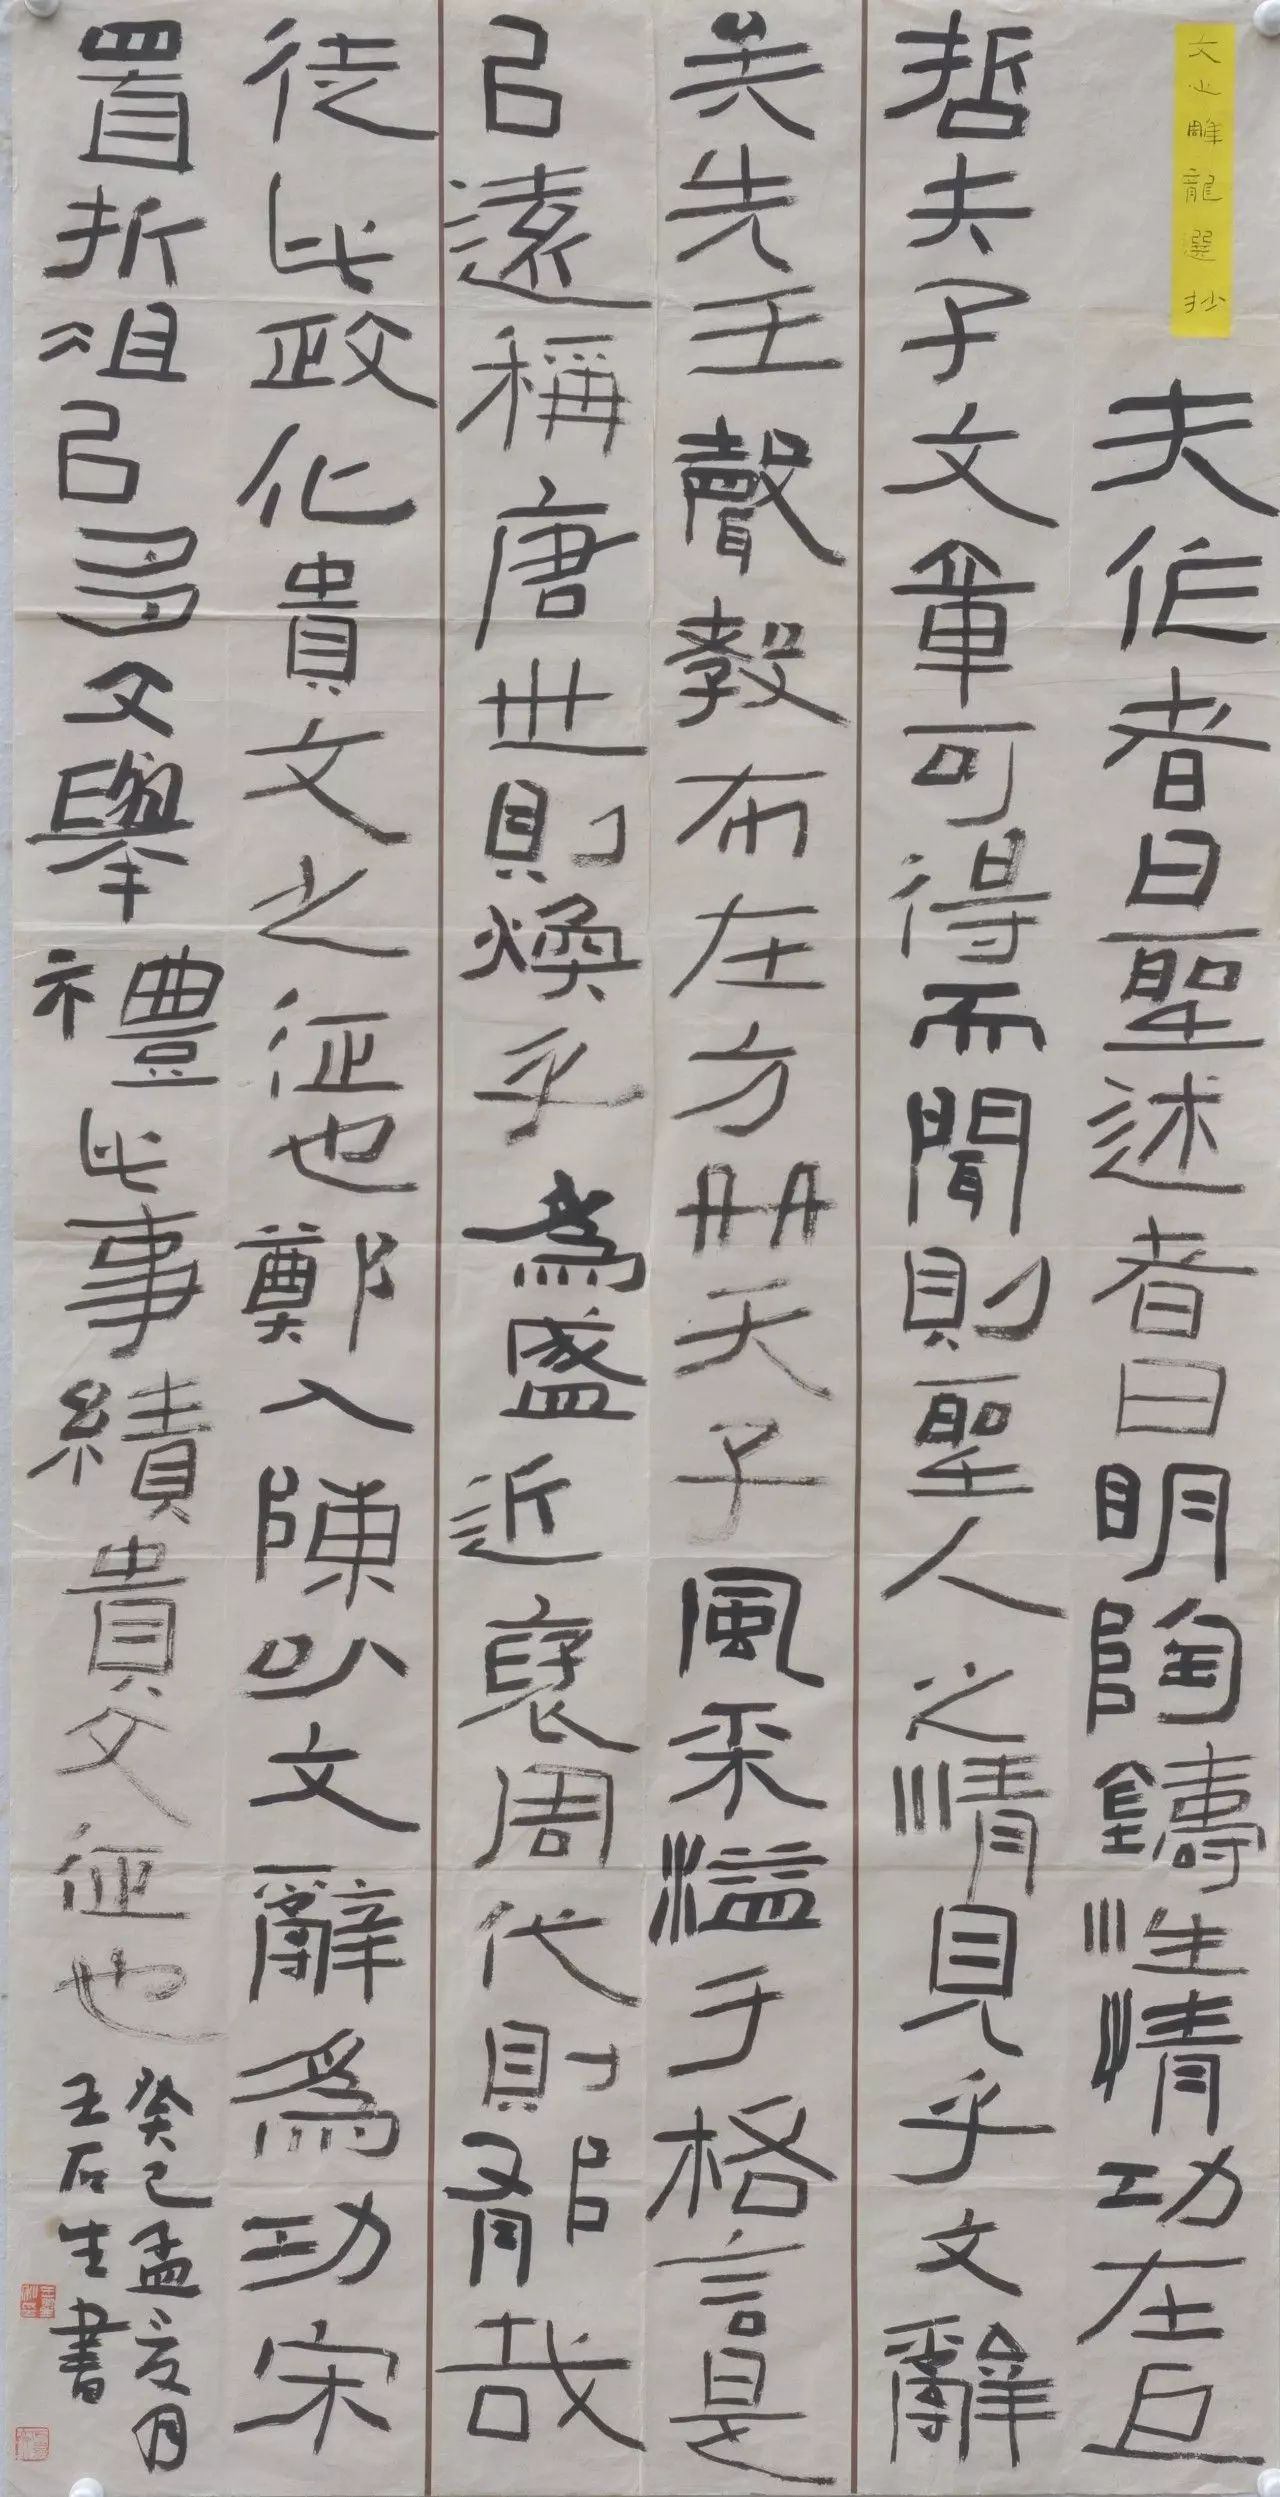 文心雕龍選抄
夫作者曰聖述者曰明陶鑄性情功在
哲夫子文章可得而聞則聖人之情見乎文辭
矣先王聲教布在方册天子風采溢于格言是
㠯遠稱唐世則煥乎為盛近褒周代則郁哉
從此政化貴文之征也鄭入陳㕥文辭為功宋
置折俎㠯多文舉禮此事績貴文征也
癸巳孟夏月
王石生書